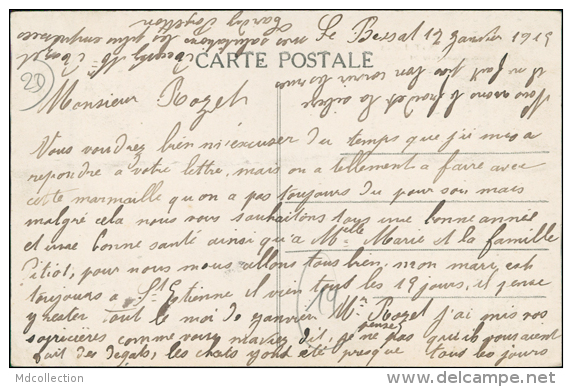 Le Bessat 12 Janvier 1915
CARTE POSTALE
29
Monsieur Rozet
Vous voudrez bien m'excuser du temps que j'ai mis a
repondre a votre lettre, mais on a tellement a faire avec
cette marmaille qu'on a pas toujours du pour soi, mais
malgré cela nous vous souhaitons tous une bonne année
et une bonne santé ainsi qu'a Mlle Marie et la famille
Pitiot, pour nous nous allons tous bien, mon mari est
toujours a St Etienne il vien tout les 19 jours, il pense
y rester tout le moi de janvier Mr Rozet j'ai mis vos
souricières comme vous m'aviez dit, je ne pense pas qu'il vous aient
fait des degats, les chats y ont été presque tous les jours
19
Nous avons
le froid et la
il en fait pas bon
avec salutations les plus empressées
Mdcollection
http://www.delcampe.net